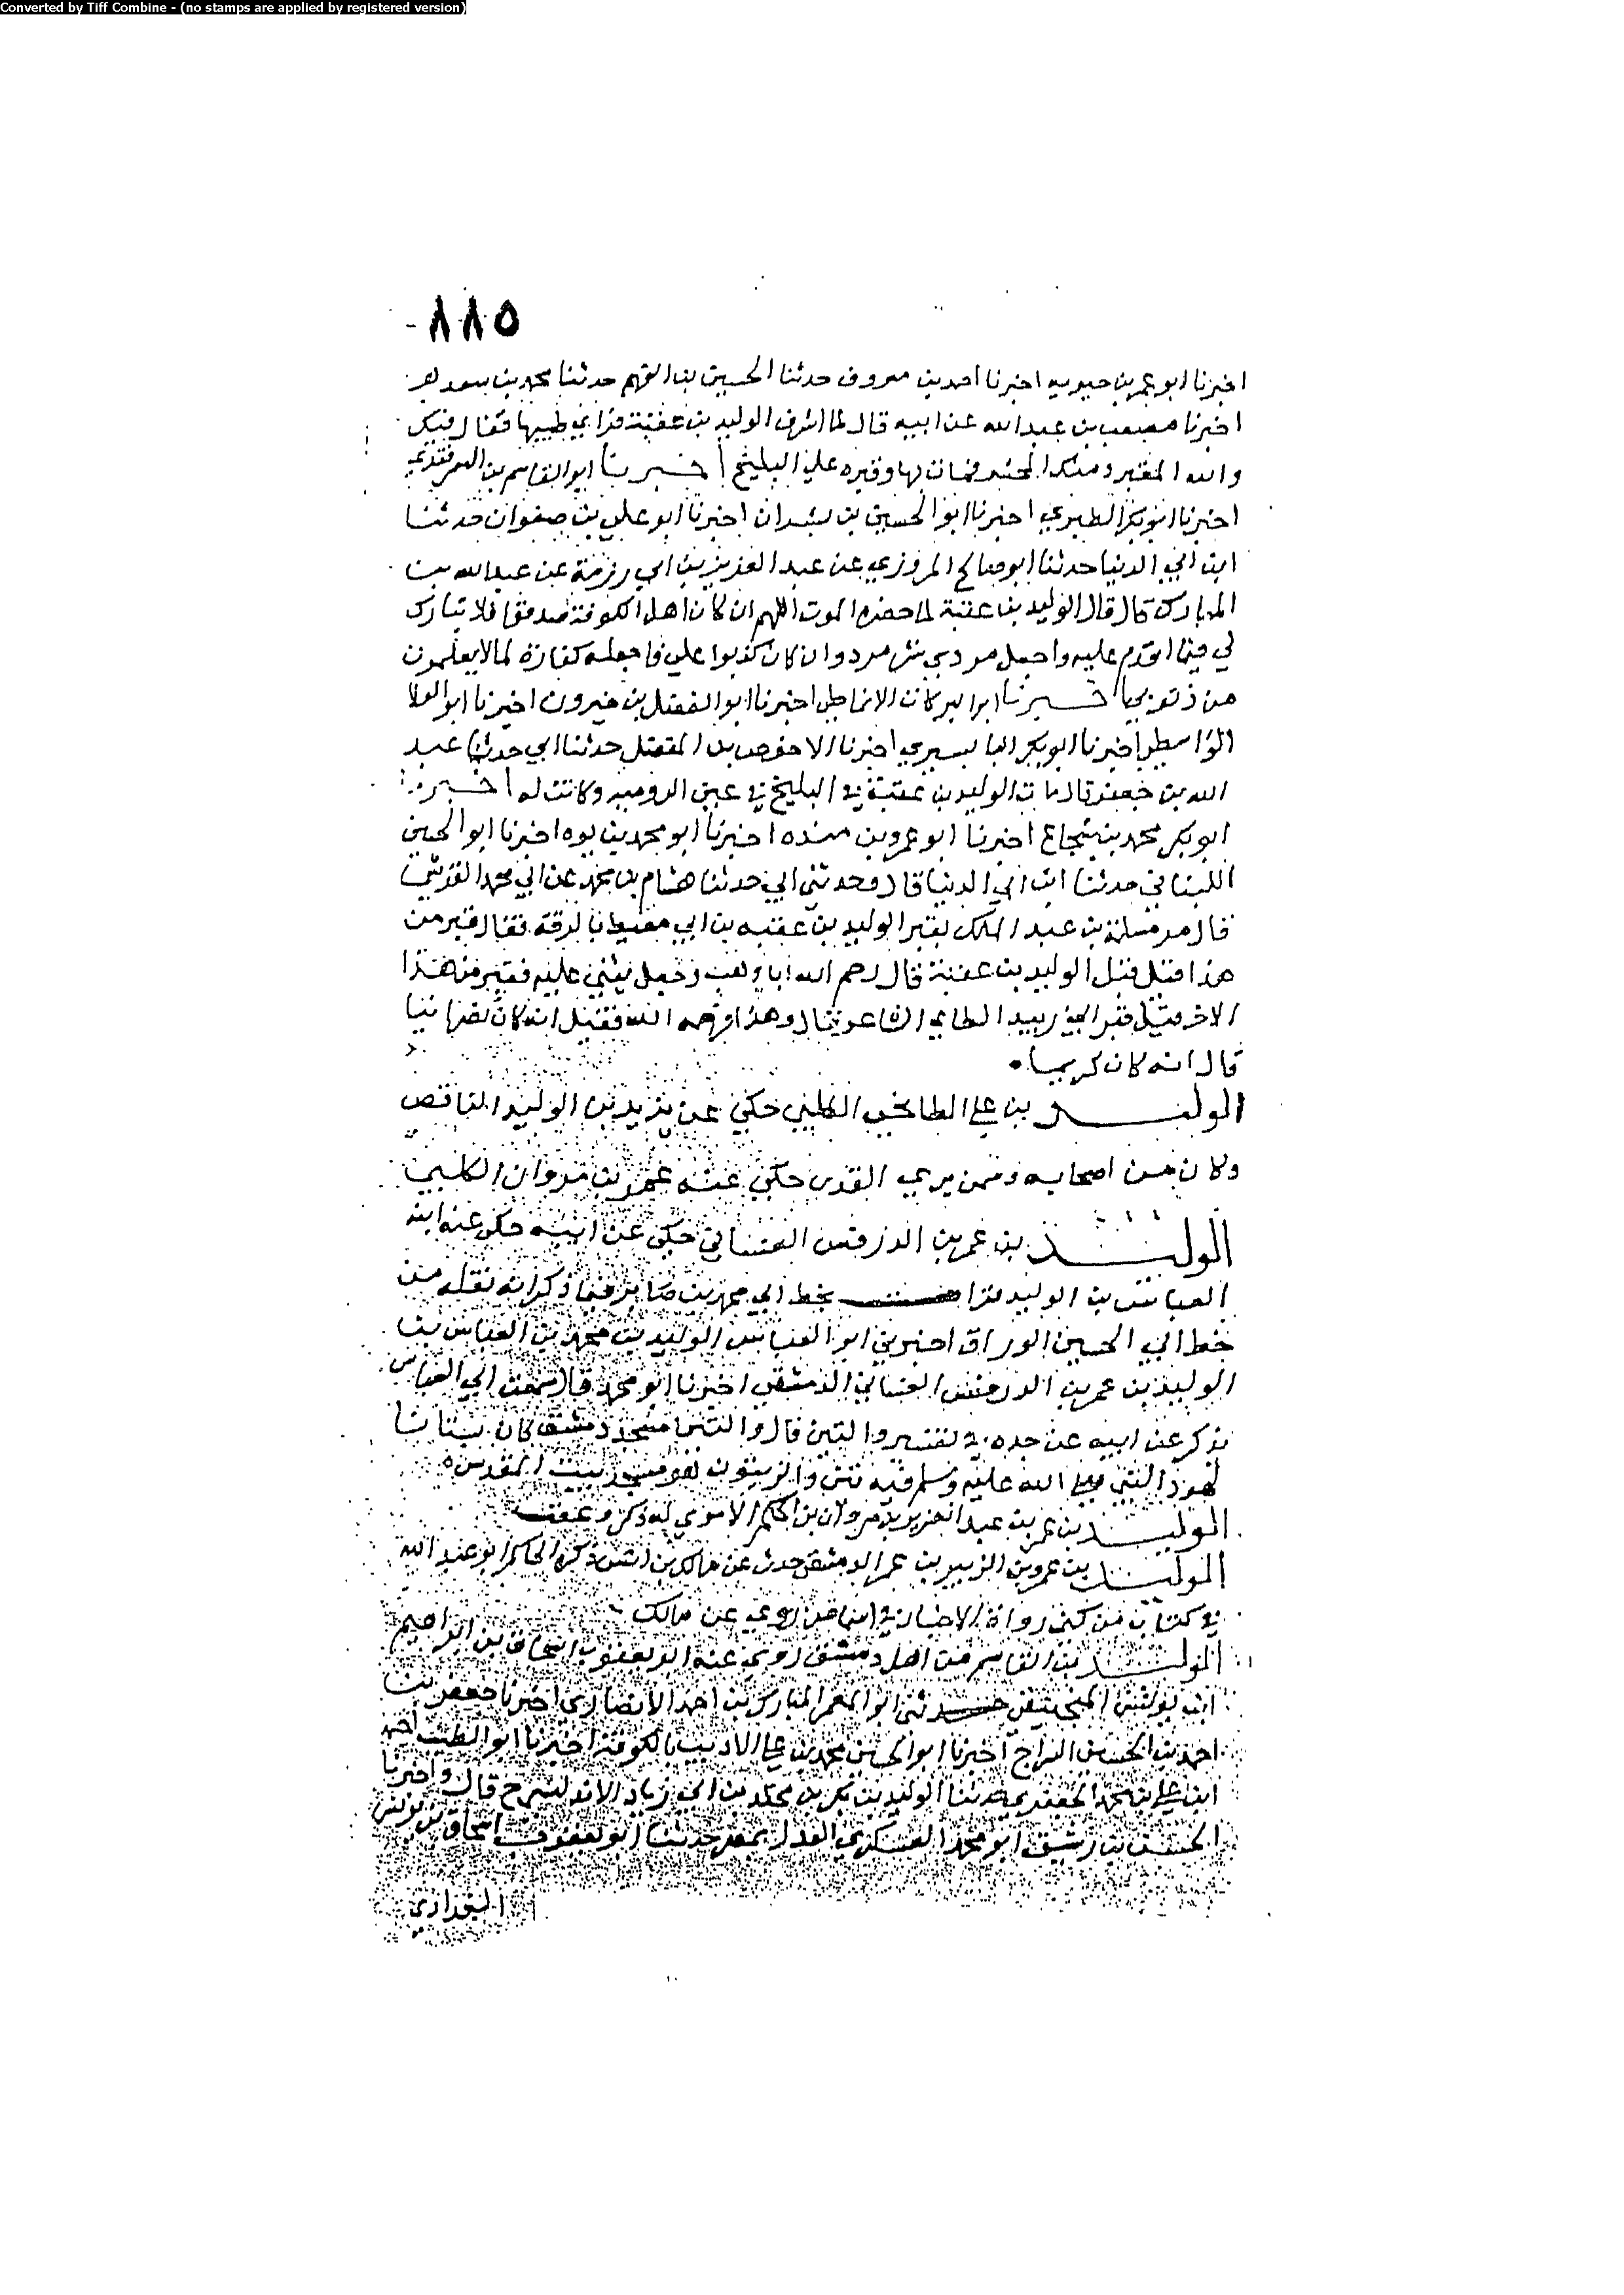 Converted by Tiff Combine - (no stamps are applied by registered version)
٨٨٥
اخبرنا ابو عمر بن حيويه اخبرنا احمد بن معروف حدثنا الحسين بن الفهم حدثنا محمد بن سعد
اخبرنا مصعب بن عبدالله عن ابيه قال لما اشرف الوليد بن عقبة فراي طيبها فقال فيك
والله المقبر ومنك المحشر فمات بها وقبره علي البليخ اخبرنا ابو القاسم بن السمرقندي
اخبرنا ابو بكر الطبري اخبرنا ابو الحسين بن بشران اخبرنا ابو علي بن صفوان حدثنا
ابن ابي الدنيا حدثنا ابو صالح المروزي عن عبد العزيز بن ابي رزمة عن عبدالله بن
المبارك قال قال الوليد بن عقبة لما حضره الموت اللهم ان كان اهل الكوفة صدقوا فلا تبارك
لي فيما اقدم عليه واجعل مردي شر مرد وان كان كذبوا علي فاجعله كفارة لما لا يعلمون
من ذنوبي اخبرنا ابو البركات الانماطي اخبرنا ابو الفضل بن خيرون اخبرنا ابو العلا
الواسطي اخبرنا ابو بكر البابسيري اخبرنا الاحوص بن المفضل حدثنا ابي حدثنا عبد
الله بن جعفر قال مات الوليد بن عقبة في البليخ في عين الروميه وكانت له اخبرنا
ابو بكر محمد بن شجاع اخبرنا ابو عمرو بن منده اخبرنا ابو محمد بن يوه اخبرنا ابو الحسن
اللبناني حدثنا ابن ابي الدنيا قال وحدثني ابي حدثنا هشام بن محمد عن ابي محمد القرشي
قال مر مسلمة بن عبد الملك بقبر الوليد بن عقبه بن ابي معيط بالرقة فقال قبر من
هذا فقيل قبل الوليد بن عقبة قال رحم الله ابا وهب وجعل يثني عليه فقبر من هذا
الاخر فقيل قبر ابي زبيد الطايي الشاعر فقال وهذا فرحمه الله فقيل انه كان نصرانيا
قال انه كان كريما
الوليد بن علي الطايي الكلبي حكي عن يزيد بن الوليد الناقص
وكان من اصحابه وممن يري القدر حكي عنه عمر بن مروان الكلبي
الوليد بن عمر بن الدرفس الغساني حكي عن ابيه حكي عنه ابنه
العباس بن الوليد قرات بخط ابي محمد بن صابر فيما ذكر انه نقله من
خط ابي الحسين الوراق اخبرني ابو العباس الوليد بن محمد بن العباس بن
الوليد بن عمر بن الدرفس الغساني الدمشقي اخبرنا ابو محمد قال سمعت ابي العباس
يذكر عن ابيه عن جده في تفسير والتين قال والتين مسجد دمشق كان بستانا
لهود النبي صلى الله عليه وسلم فيه تين والزيتون هو مسجد بيت المقدس
الوليد بن عمر بن عبد العزيز بن مروان بن الحكم الاموي له ذكر وعقب
الوليد بن عمرو بن الزبير بن عمر الدمشقي حدث عن مالك بن انس ذكره الحاكم ابو عبد الله
في كتاب مزكي رواة الاخبار في اسامي من روي عن مالك
الوليد بن القاسم من اهل دمشق روي عنه ابو يعقوب اسحاق بن ابراهيم
ابن يونس المنجنيقي حدثني ابو المعمر المبارك بن احمد الانصاري اخبرنا جعفر بن
احمد بن الحسين السراج اخبرنا ابو الحسين محمد بن علي الاديب بالكوفة اخبرنا ابو الطيب احمد
ابن علي بن محمد الجعفري حدثنا الوليد بن بكر بن مخلد بن ابي زياد الاندلسي ح قال واخبرنا
الحسن بن رشيق ابو محمد العسكري العدل بمصر حدثنا ابو يعقوب اسحاق بن يونس
البغدادي